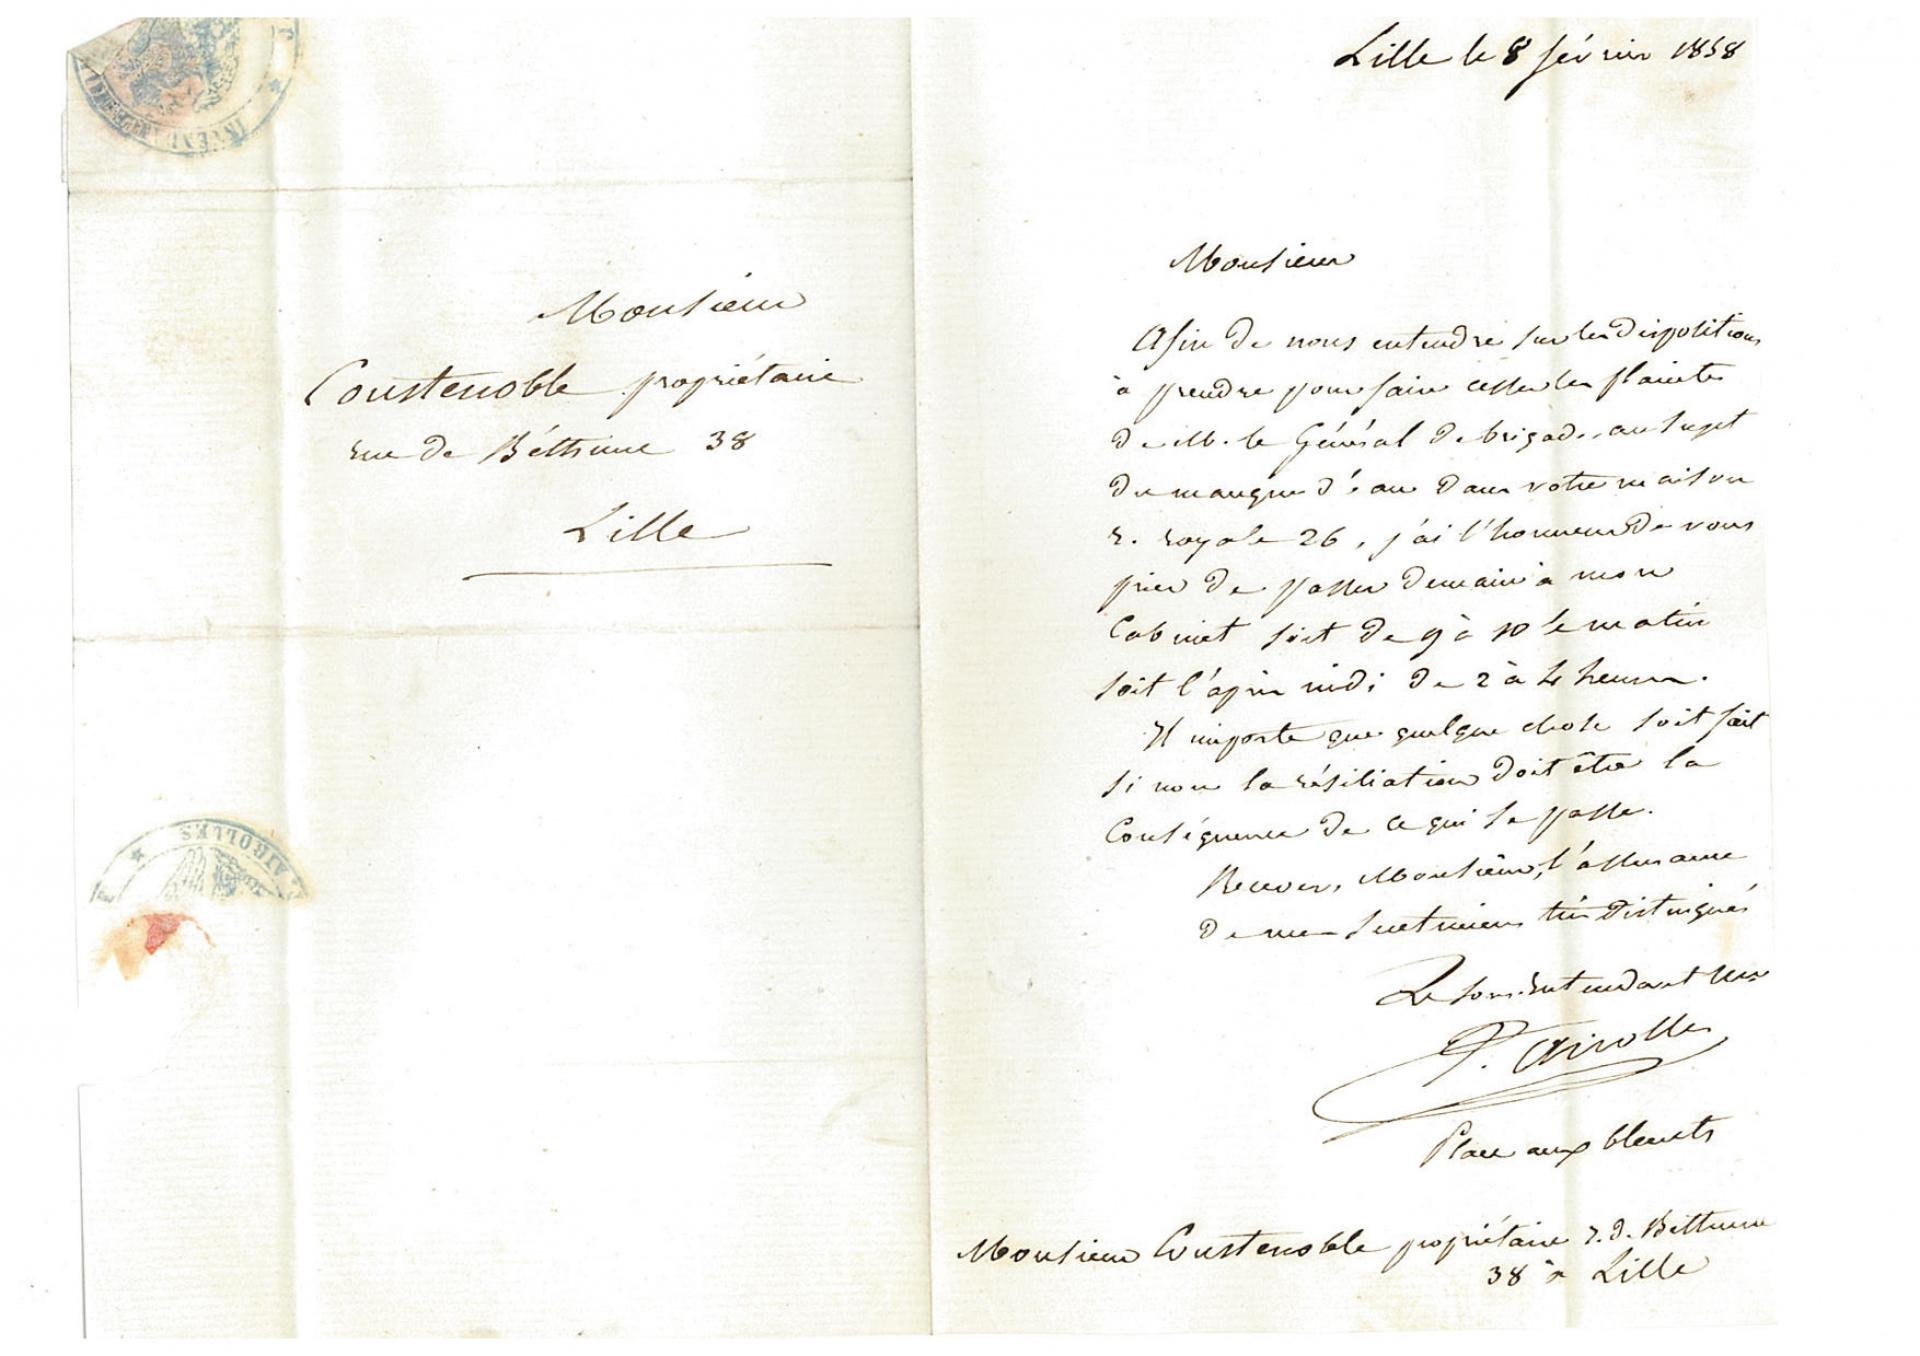 Monsieur
Coustenoble propriétaire
rue de Béthune 38
Lille
AIROLLES
Lille le 8 février 1858
Monsieur
Afin de nous entendre sur les dispositions
à prendre pour faire cesser les plaintes
de M. le Général de brigade, au sujet
du manque d'eau dans votre maison
r. royale 26, j'ai l'honneur de vous
prier de passer demain à mon
Cabinet soit de 9 à 10 le matin
soit l'après midi de 2 à 4 heures.
Il importe que quelque chose soit fait
si non la résiliation doit être la
Conséquence de ce qui se passe.
Recevez, Monsieur, l'assurance
de mes sentimens très distingués
Le Sous-Intendant mre
P. Airolles
Place aux bleuets
Monsieur Coustenoble propriétaire r. d. Béthune
38 à Lille